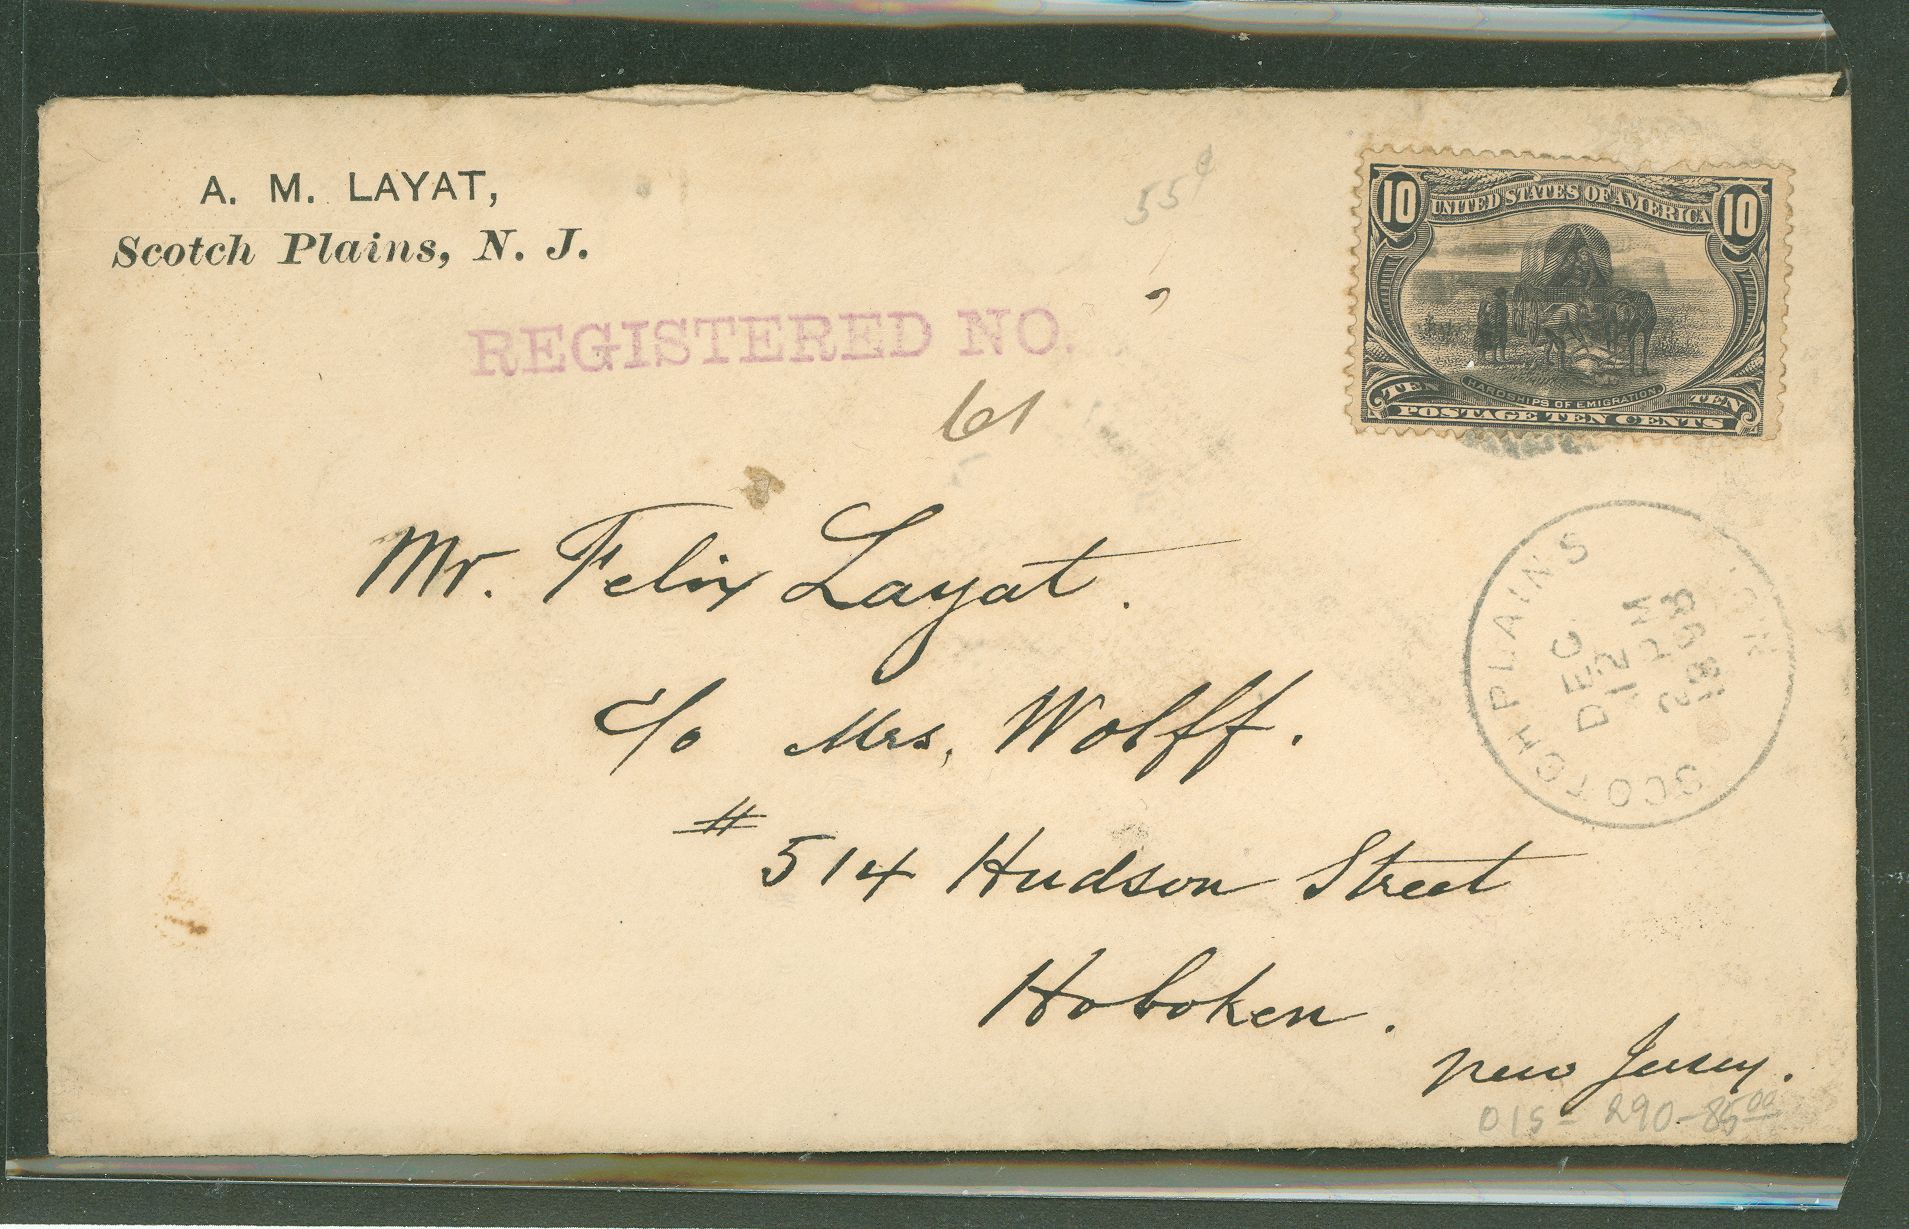 A. M. LAYAT,
Scotch Plains, N. J.
55¢
REGISTERED NO.
61
10 UNITED STATES OF AMERICA 10
HARDSHIPS OF EMIGRATION.
TEN TEN
POSTAGE TEN CENTS
SCOTCH PLAINS N.J.
DEC
12
2 PM
1898
Mr. Felix Layat.
c/o Mrs, Wolff.
# 514 Hudson Street
Hoboken.
New Jersey.
290-85 00